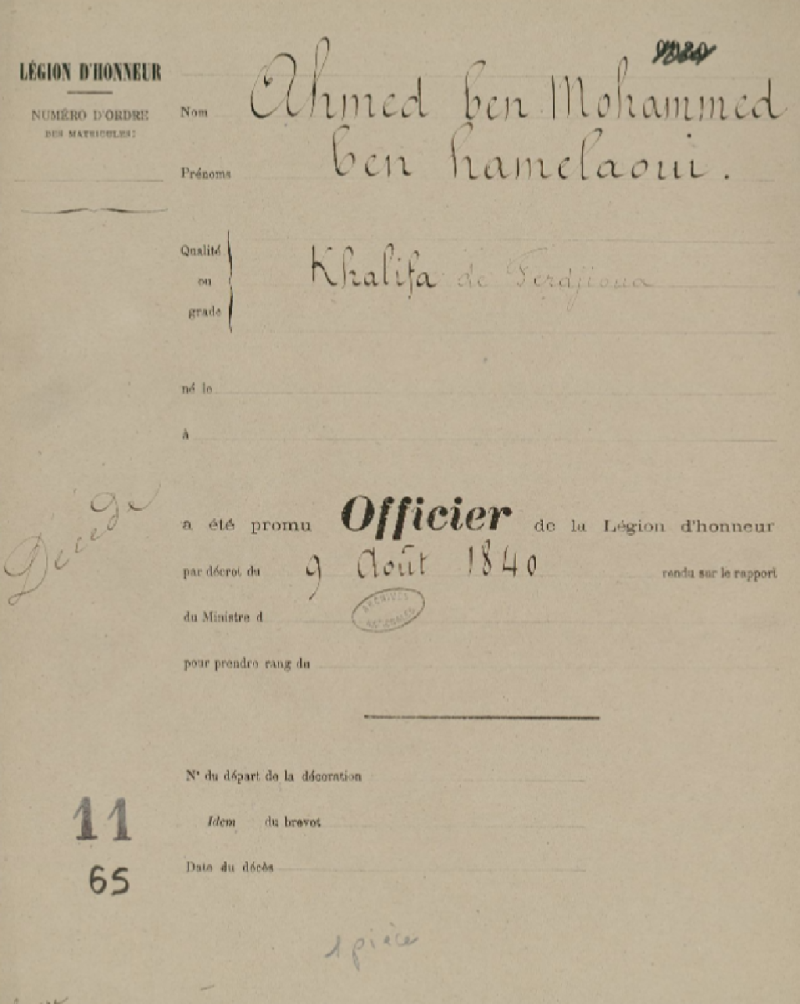 LÉGION D'HONNEUR
NUMÉRO D'ORDRE
DES MATRICULES:
Nom Ahmed ben Mohammed
Prénoms ben hamelaoui.
Qualité
ou Khalifa de Ferdjioua
grade
né le
à
Décédé
a été promu Officier de la Légion d'honneur
par décret du 9 Août 1840 rendu sur le rapport
du Ministre d
ARCHIVES
NATIONALES
pour prendre rang du
N° du départ de la décoration
Idem du brevet
Date du décès
11
65
1 pièce